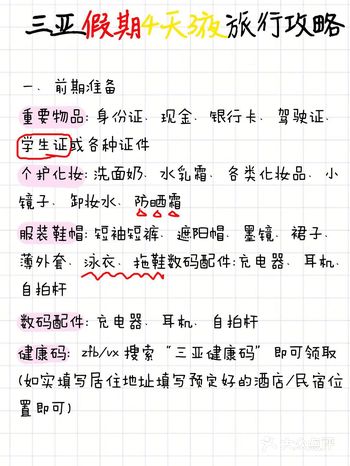 三亚假期4天3夜旅行攻略
一、前期准备
重要物品: 身份证、现金、银行卡、驾驶证、
学生证或各种证件
个护化妆: 洗面奶、水乳霜、各类化妆品、小
镜子、卸妆水、防晒霜
服装鞋帽: 短袖短裤、遮阳帽、墨镜、裙子、
薄外套、泳衣、拖鞋数码配件:充电器、耳机、
自拍杆
数码配件: 充电器、耳机、自拍杆
健康码: zfb/vx 搜索“三亚健康码”即可领取
(如实填写居住地址填写预定好的酒店/民宿位
置即可)
大众点评